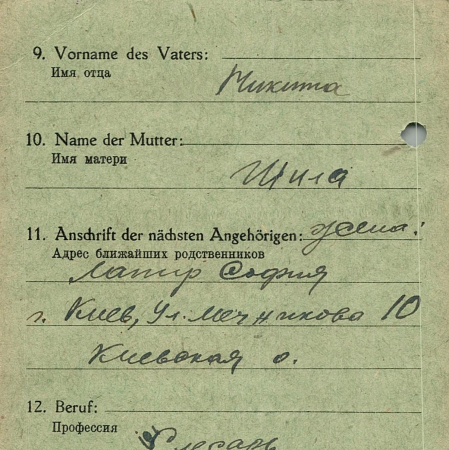 9. Vorname des Vaters:
Имя отца
Микита
10. Name der Mutter:
Имя матери
Шила
11. Anschrift der nächsten Angehörigen: жена:
Адрес ближайших родственников
Лапир София
г. Киев, ул. Мечникова 10
Киевская о.
12. Beruf:
Профессия
Слесарь